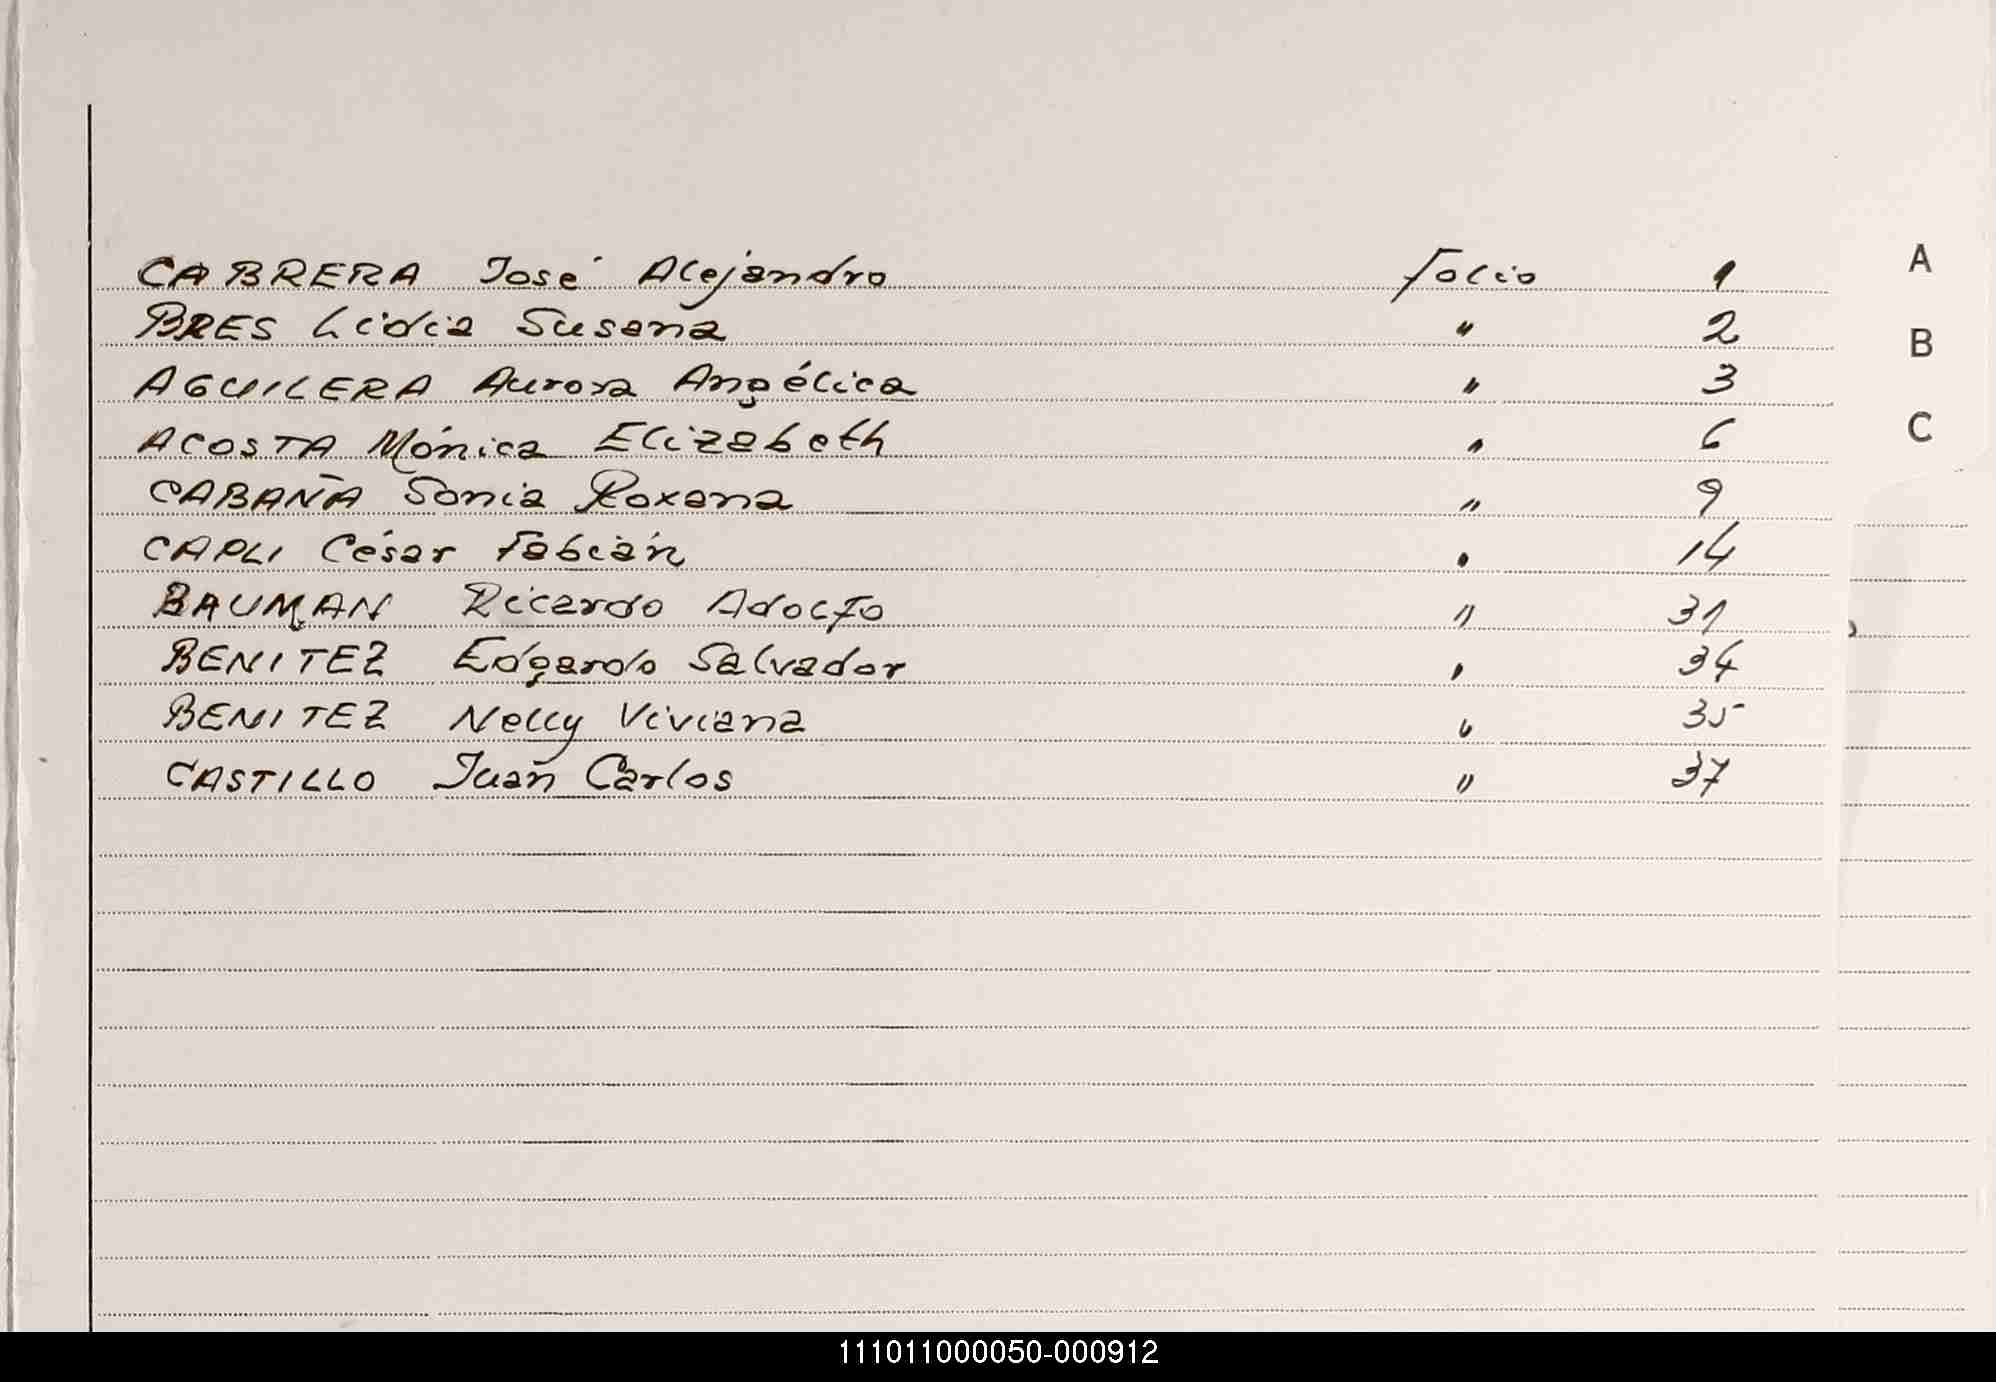 CABRERA José Alejandro folio 1
BRES Lidia Susana " 2
AGUILERA Aurora Angélica " 3
ACOSTA Mónica Elizabeth " 6
CABAÑA Sonia Roxana " 9
CAPLI César Fabián " 14
BAUMAN Ricardo Adolfo " 31
BENITEZ Edgardo Salvador " 34
BENITEZ Nelly Viviana " 35
CASTILLO Juan Carlos " 37
A
B
C
111011000050-000912